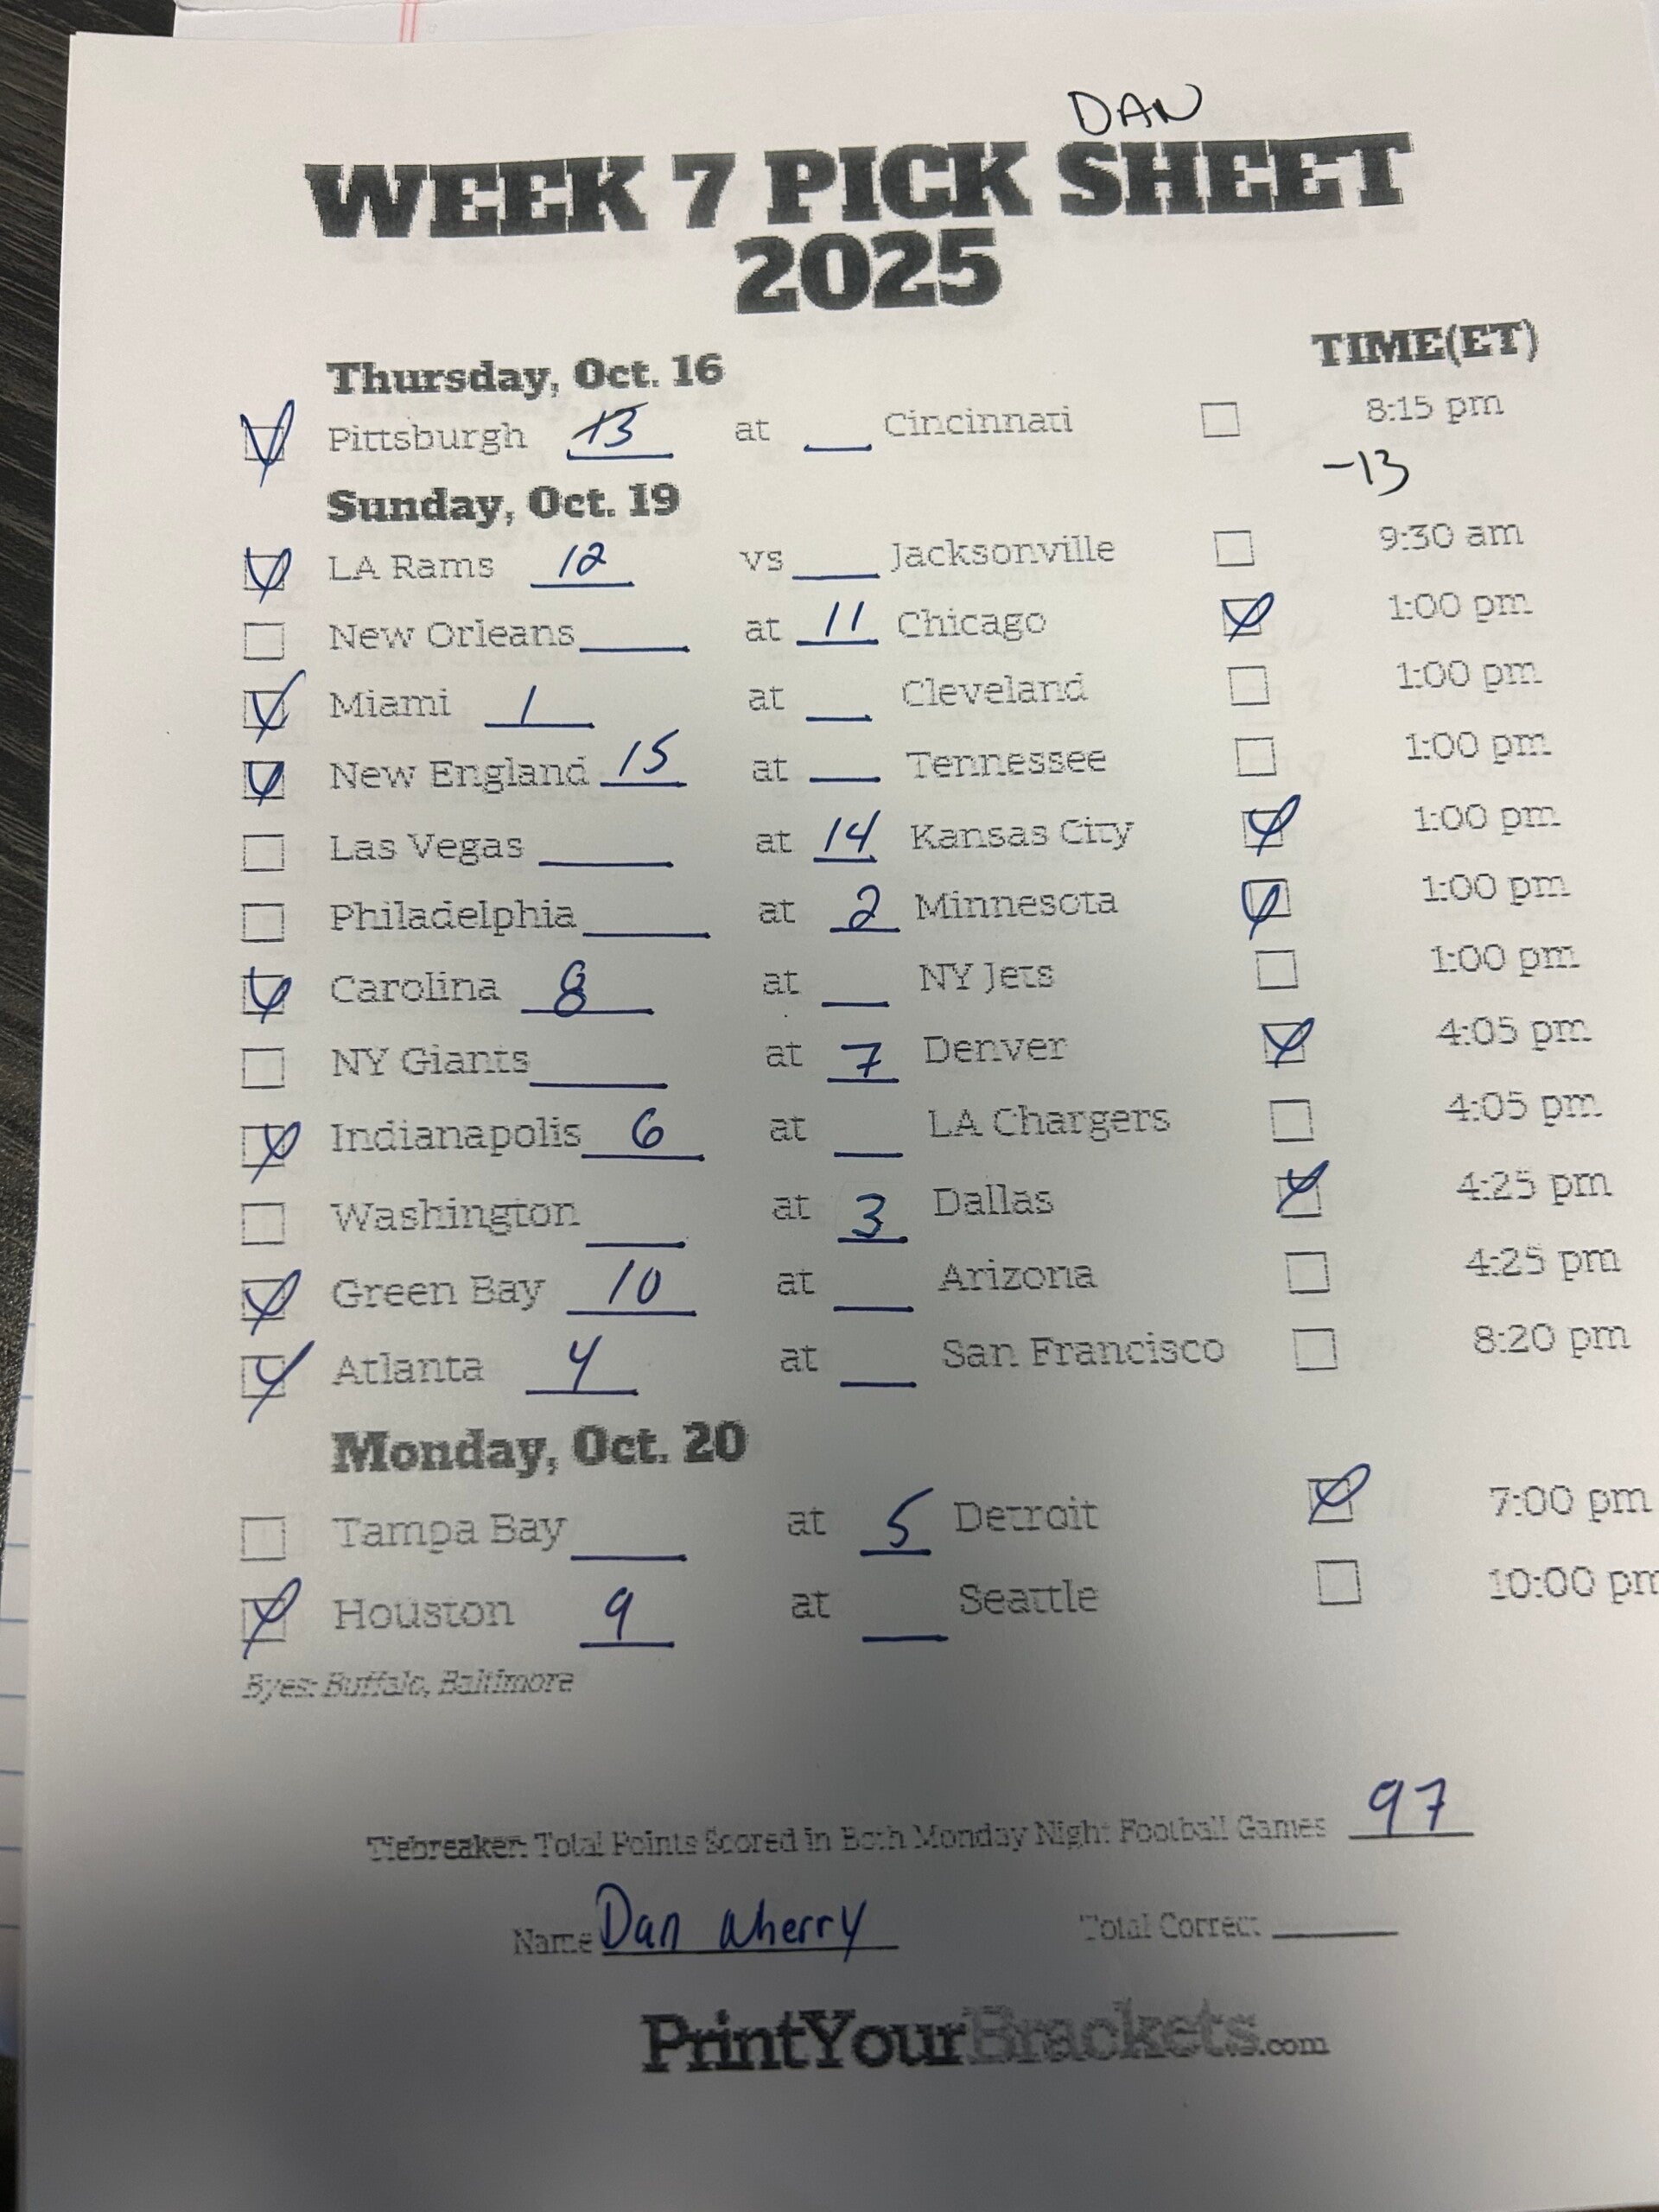 DAN
WEEK 7 PICK SHEET
2025
TIME(ET)
Thursday, Oct. 16
Pittsburgh 13 at Cincinnati 8:15 pm
-13
Sunday, Oct. 19
LA Rams 12 vs Jacksonville 9:30 am
New Orleans at 11 Chicago 1:00 pm
Miami 1 at Cleveland 1:00 pm
New England 15 at Tennessee 1:00 pm
Las Vegas at 14 Kansas City 1:00 pm
Philadelphia at 2 Minnesota 1:00 pm
Carolina 8 at NY Jets 1:00 pm
NY Giants at 7 Denver 4:05 pm
Indianapolis 6 at LA Chargers 4:05 pm
Washington at 3 Dallas 4:25 pm
Green Bay 10 at Arizona 4:25 pm
Atlanta 4 at San Francisco 8:20 pm
Monday, Oct. 20
Tampa Bay at 5 Detroit 7:00 pm
Houston 9 at Seattle 10:00 pm
Byes: Buffalo, Baltimore
Tiebreaker: Total Points Scored in Both Monday Night Football Games 97
Name Dan Wherry Total Correct
PrintYourBrackets.com